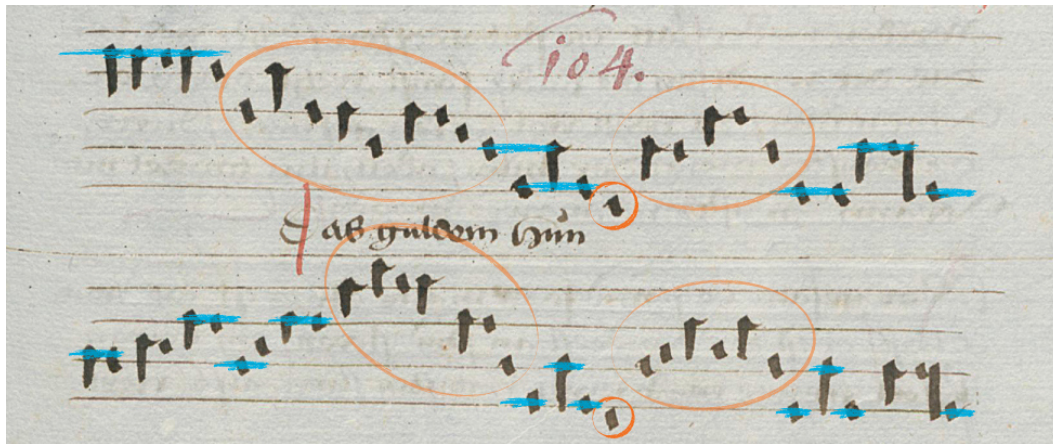 104.
Das guldein hun